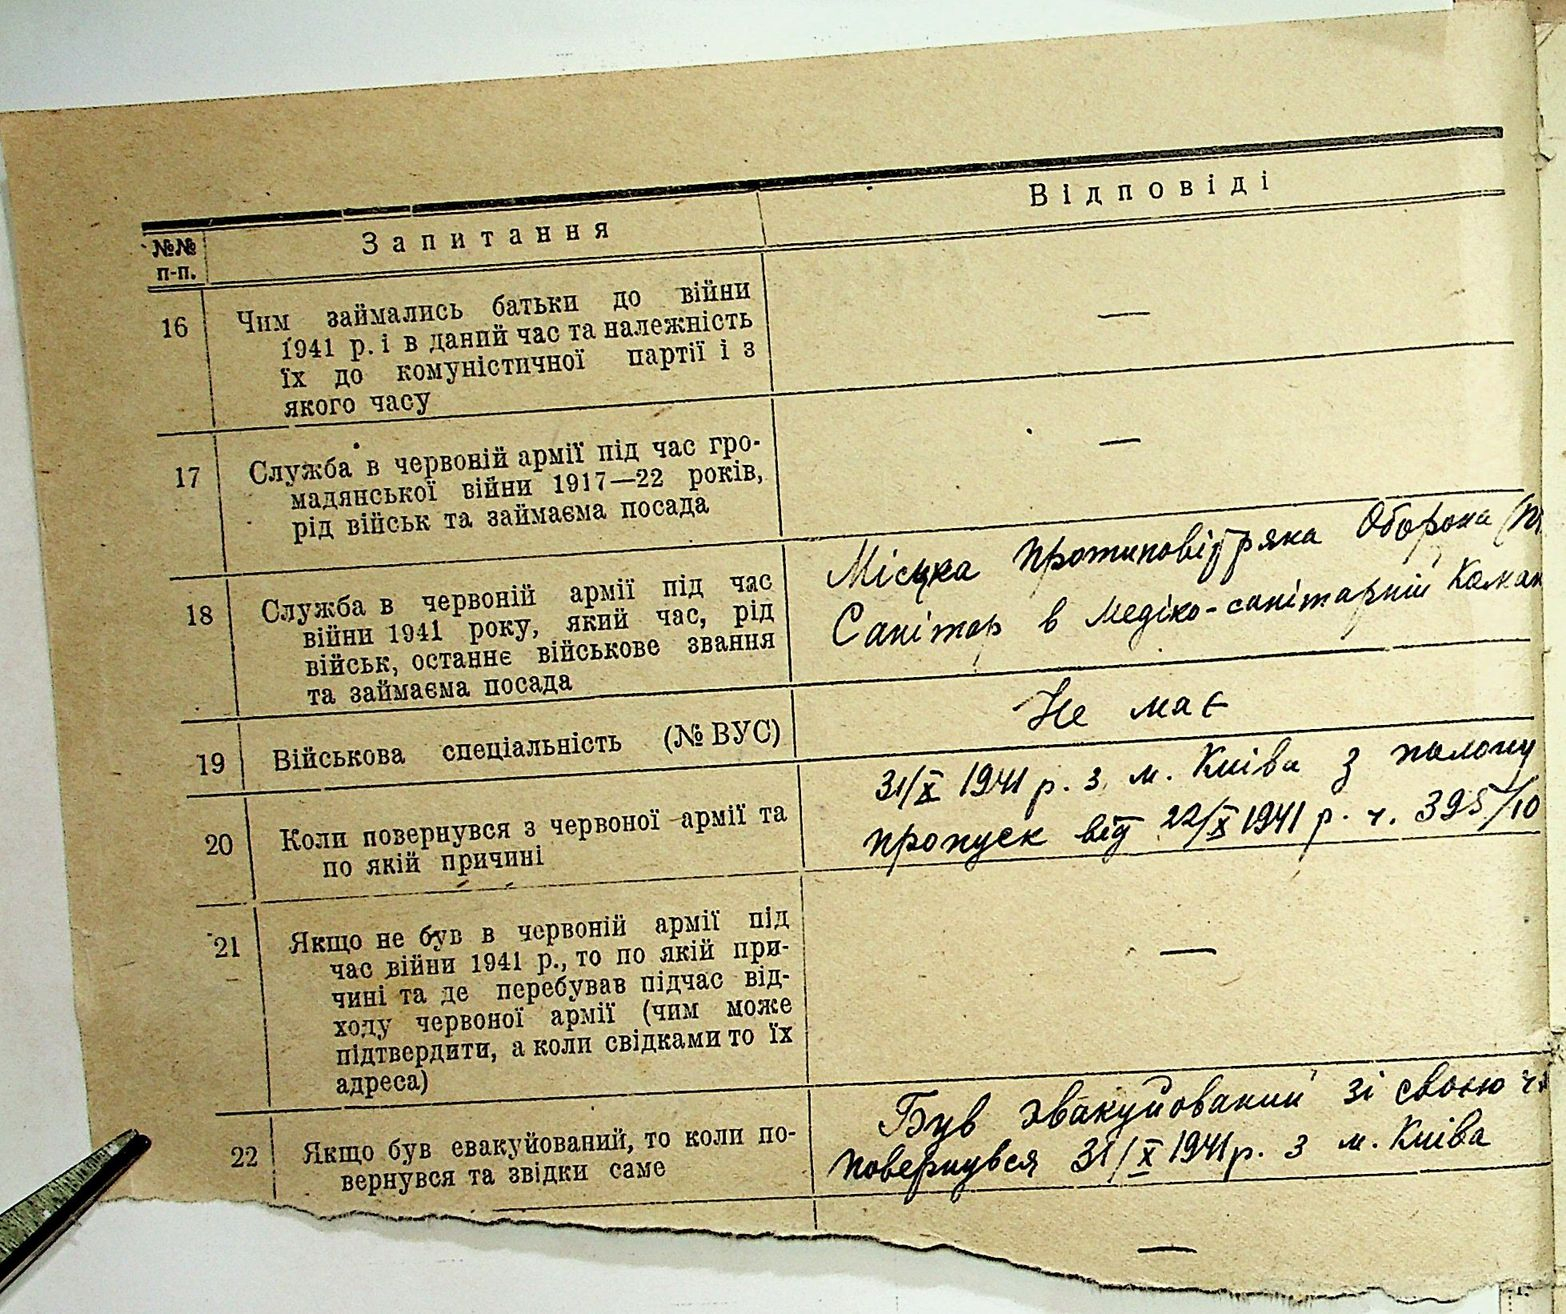 №№ п-п.
Запитання
Відповіді
16
Чим займались батьки до війни
1941 р. і в даний час та належність
їх до комуністичної партії і з
якого часу
—
17
Служба в червоній армії під час гро-
мадянської війни 1917—22 років,
рід військ та займаєма посада
—
18
Служба в червоній армії під час
війни 1941 року, який час, рід
військ, останнє військове звання
та займаєма посада
Місцка Протиповітряна Оборона
Санітар в медіко-санітарній Коман
19
Військова спеціальність (№ ВУС)
Не має
20
Коли повернувся з червоної армії та
по якій причині
31/X 1941 р. з м. Київа з полону
пропуск від 22/X 1941 р. ч. 395/10
21
Якщо не був в червоній армії під
час війни 1941 р., то по якій при-
чині та де перебував підчас від-
ходу червоної армії (чим може
підтвердити, а коли свідками то їх
адреса)
—
22
Якщо був евакуйований, то коли по-
вернувся та звідки саме
Був эвакуйований зі своєю
повернувся 31/X 1941 р. з м. Київа
—